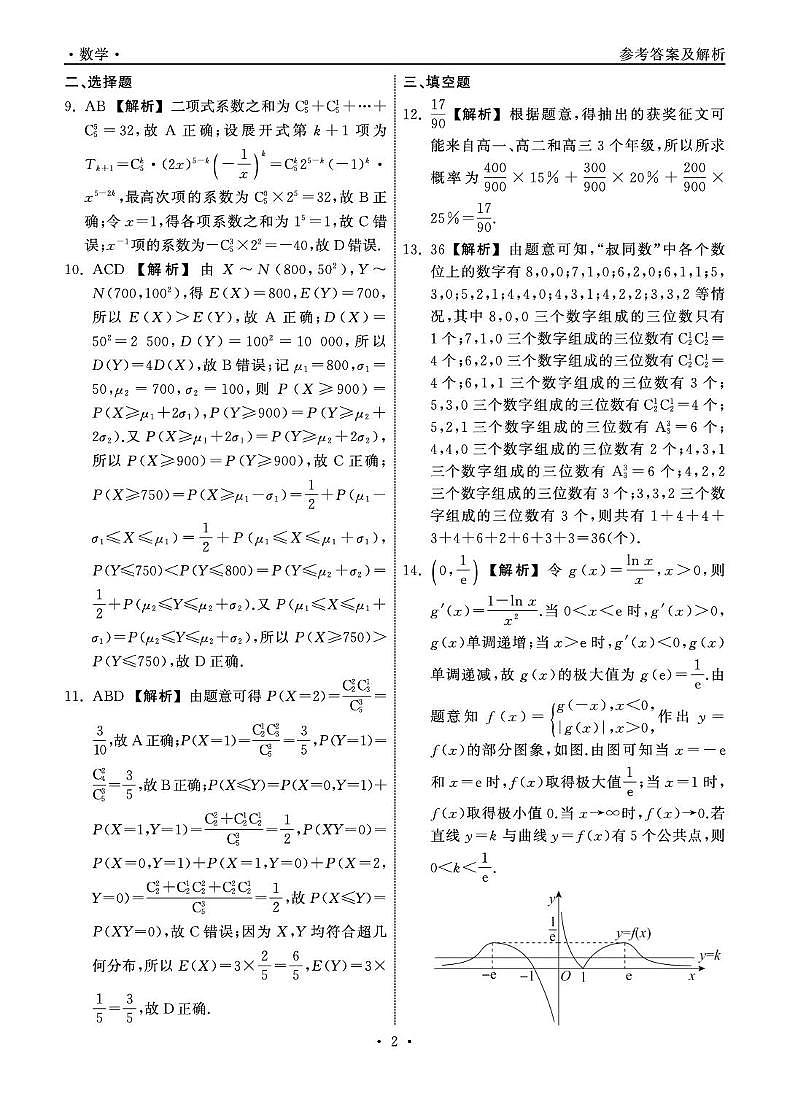 ·数学·
参考答案及解析
二、选择题
9. AB 【解析】二项式系数之和为 C₅⁰+C₅¹+…+
C₅⁵=32,故 A 正确;设展开式第 k+1 项为
Tₖ₊₁=C₅ᵏ·(2x)⁵⁻ᵏ(-1/x)ᵏ=C₅ᵏ2⁵⁻ᵏ(-1)ᵏ·
x⁵⁻²ᵏ,最高次项的系数为 C₅⁰×2⁵=32,故 B 正
确;令 x=1,得各项系数之和为 1⁵=1,故 C 错
误;x⁻¹项的系数为-C₅³×2²=-40,故 D 错误.
10. ACD 【解析】由 X~N(800,50²),Y~
N(700,100²),得 E(X)=800,E(Y)=700,
所以 E(X)>E(Y),故 A 正确;D(X)=
50²=2 500,D(Y)=100²=10 000,所以
D(Y)=4D(X),故 B 错误;记 μ₁=800,σ₁=
50,μ₂=700,σ₂=100,则 P(X≥900)=
P(X≥μ₁+2σ₁),P(Y≥900)=P(Y≥μ₂+
2σ₂).又 P(X≥μ₁+2σ₁)=P(Y≥μ₂+2σ₂),
所以 P(X≥900)=P(Y≥900),故 C 正确;
P(X≥750)=P(X≥μ₁-σ₁)=1/2+P(μ₁-
σ₁≤X≤μ₁)=1/2+P(μ₁≤X≤μ₁+σ₁),
P(Y≤750)<P(Y≤800)=P(Y≤μ₂+σ₂)=
1/2+P(μ₂≤Y≤μ₂+σ₂).又 P(μ₁≤X≤μ₁+
σ₁)=P(μ₂≤Y≤μ₂+σ₂),所以 P(X≥750)>
P(Y≤750),故 D 正确.
11. ABD 【解析】由题意可得 P(X=2)=C₂²C₃¹/C₅³=
3/10,故 A 正确;P(X=1)=C₂¹C₃²/C₅³=3/5,P(Y=1)=
C₄²/C₅³=3/5,故 B 正确;P(X≤Y)=P(X=0,Y=1)+
P(X=1,Y=1)=(C₂²+C₂¹C₂¹)/C₅³=1/2,P(XY=0)=
P(X=0,Y=1)+P(X=1,Y=0)+P(X=2,
Y=0)=(C₂²+C₂¹C₂²+C₂²C₂¹)/C₅³=1/2,故 P(X≤Y)=
P(XY=0),故 C 错误;因为 X,Y 均符合超几
何分布,所以 E(X)=3×2/5=6/5,E(Y)=3×
1/5=3/5,故 D 正确.
三、填空题
12. 17/90 【解析】根据题意,得抽出的获奖征文可
能来自高一、高二和高三 3 个年级,所以所求
概率为 400/900×15%+300/900×20%+200/900×
25%=17/90.
13. 36 【解析】由题意可知,“叔同数”中各个数
位上的数字有 8,0,0;7,1,0;6,2,0;6,1,1;5,
3,0;5,2,1;4,4,0;4,3,1;4,2,2;3,3,2 等情
况,其中 8,0,0 三个数字组成的三位数只有
1 个;7,1,0 三个数字组成的三位数有 C₂¹C₂¹=
4 个;6,2,0 三个数字组成的三位数有 C₂¹C₂¹=
4 个;6,1,1 三个数字组成的三位数有 3 个;
5,3,0 三个数字组成的三位数有 C₂¹C₂¹=4 个;
5,2,1 三个数字组成的三位数有 A₃³=6 个;
4,4,0 三个数字组成的三位数有 2 个;4,3,1
三个数字组成的三位数有 A₃³=6 个;4,2,2
三个数字组成的三位数有 3 个;3,3,2 三个数
字组成的三位数有 3 个,则共有 1+4+4+
3+4+6+2+6+3+3=36(个).
14. (0,1/e) 【解析】令 g(x)=ln x/x,x>0,则
g′(x)=(1-ln x)/x².当 0<x<e 时,g′(x)>0,
g(x)单调递增;当 x>e 时,g′(x)<0,g(x)
单调递减,故 g(x)的极大值为 g(e)=1/e.由
题意知 f(x)={g(-x),x<0, |g(x)|,x>0, 作出 y=
f(x)的部分图象,如图.由图可知当 x=-e
和 x=e 时,f(x)取得极大值1/e;当 x=1 时,
f(x)取得极小值 0.当 x→∞时,f(x)→0.若
直线 y=k 与曲线 y=f(x)有 5 个公共点,则
0<k<1/e.
y
1/e
y=f(x)
y=k
-e -1 O 1 e x
·2·